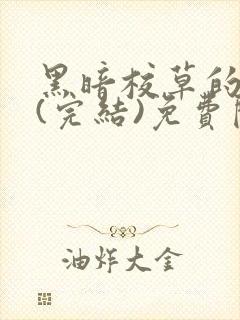 黑暗校草的
(完結)免費
油炸大金